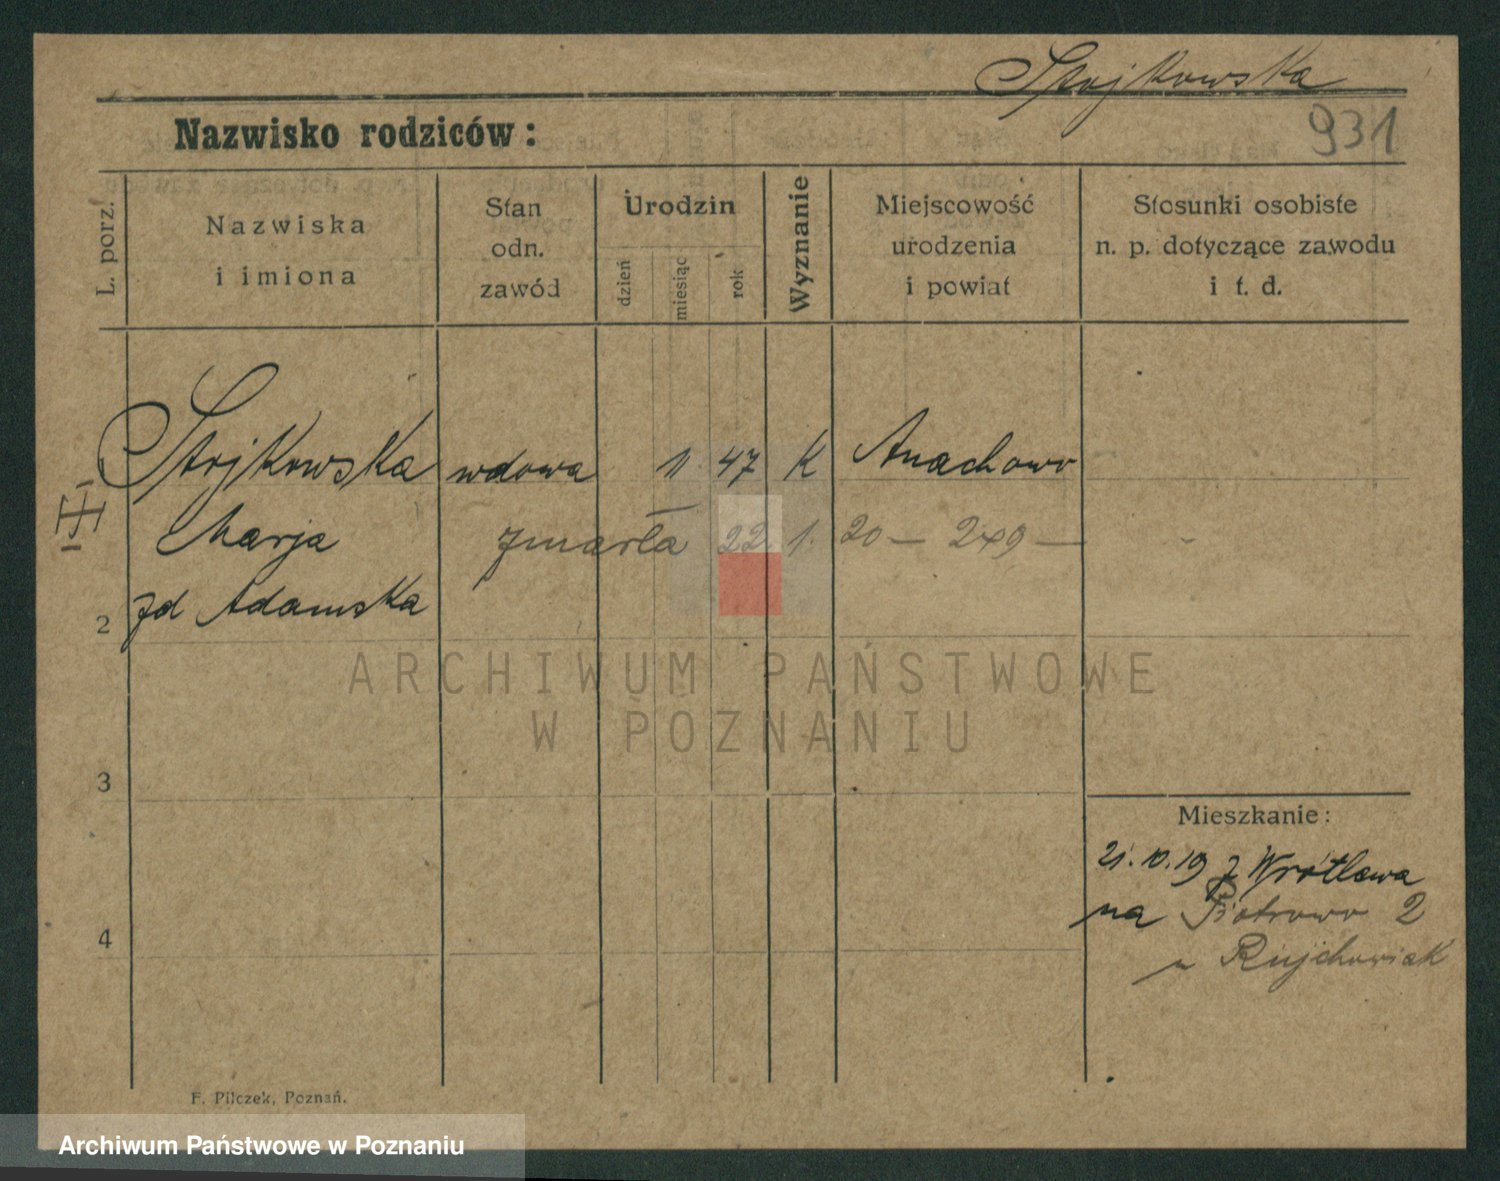 Stojkowska
931
Nazwisko rodziców:
L. porz.
Nazwiska
i imiona
Stan
odn.
zawód
Urodzin
dzień
miesiąc
rok
Wyznanie
Miejscowość
urodzenia
i powiat
Stosunki osobiste
n. p. dotyczące zawodu
i t. d.
Stojkowska wdowa 11 47 K
Marja zmarła 22. 1. 20 — 2x9 —
2 zd Adamska
ARCHIWUM PAŃSTWOWE
W POZNANIU
3
Mieszkanie:
21.10.19 z
na Piotrowo 2
4
F. Pilczek, Poznań.
Archiwum Państwowe w Poznaniu